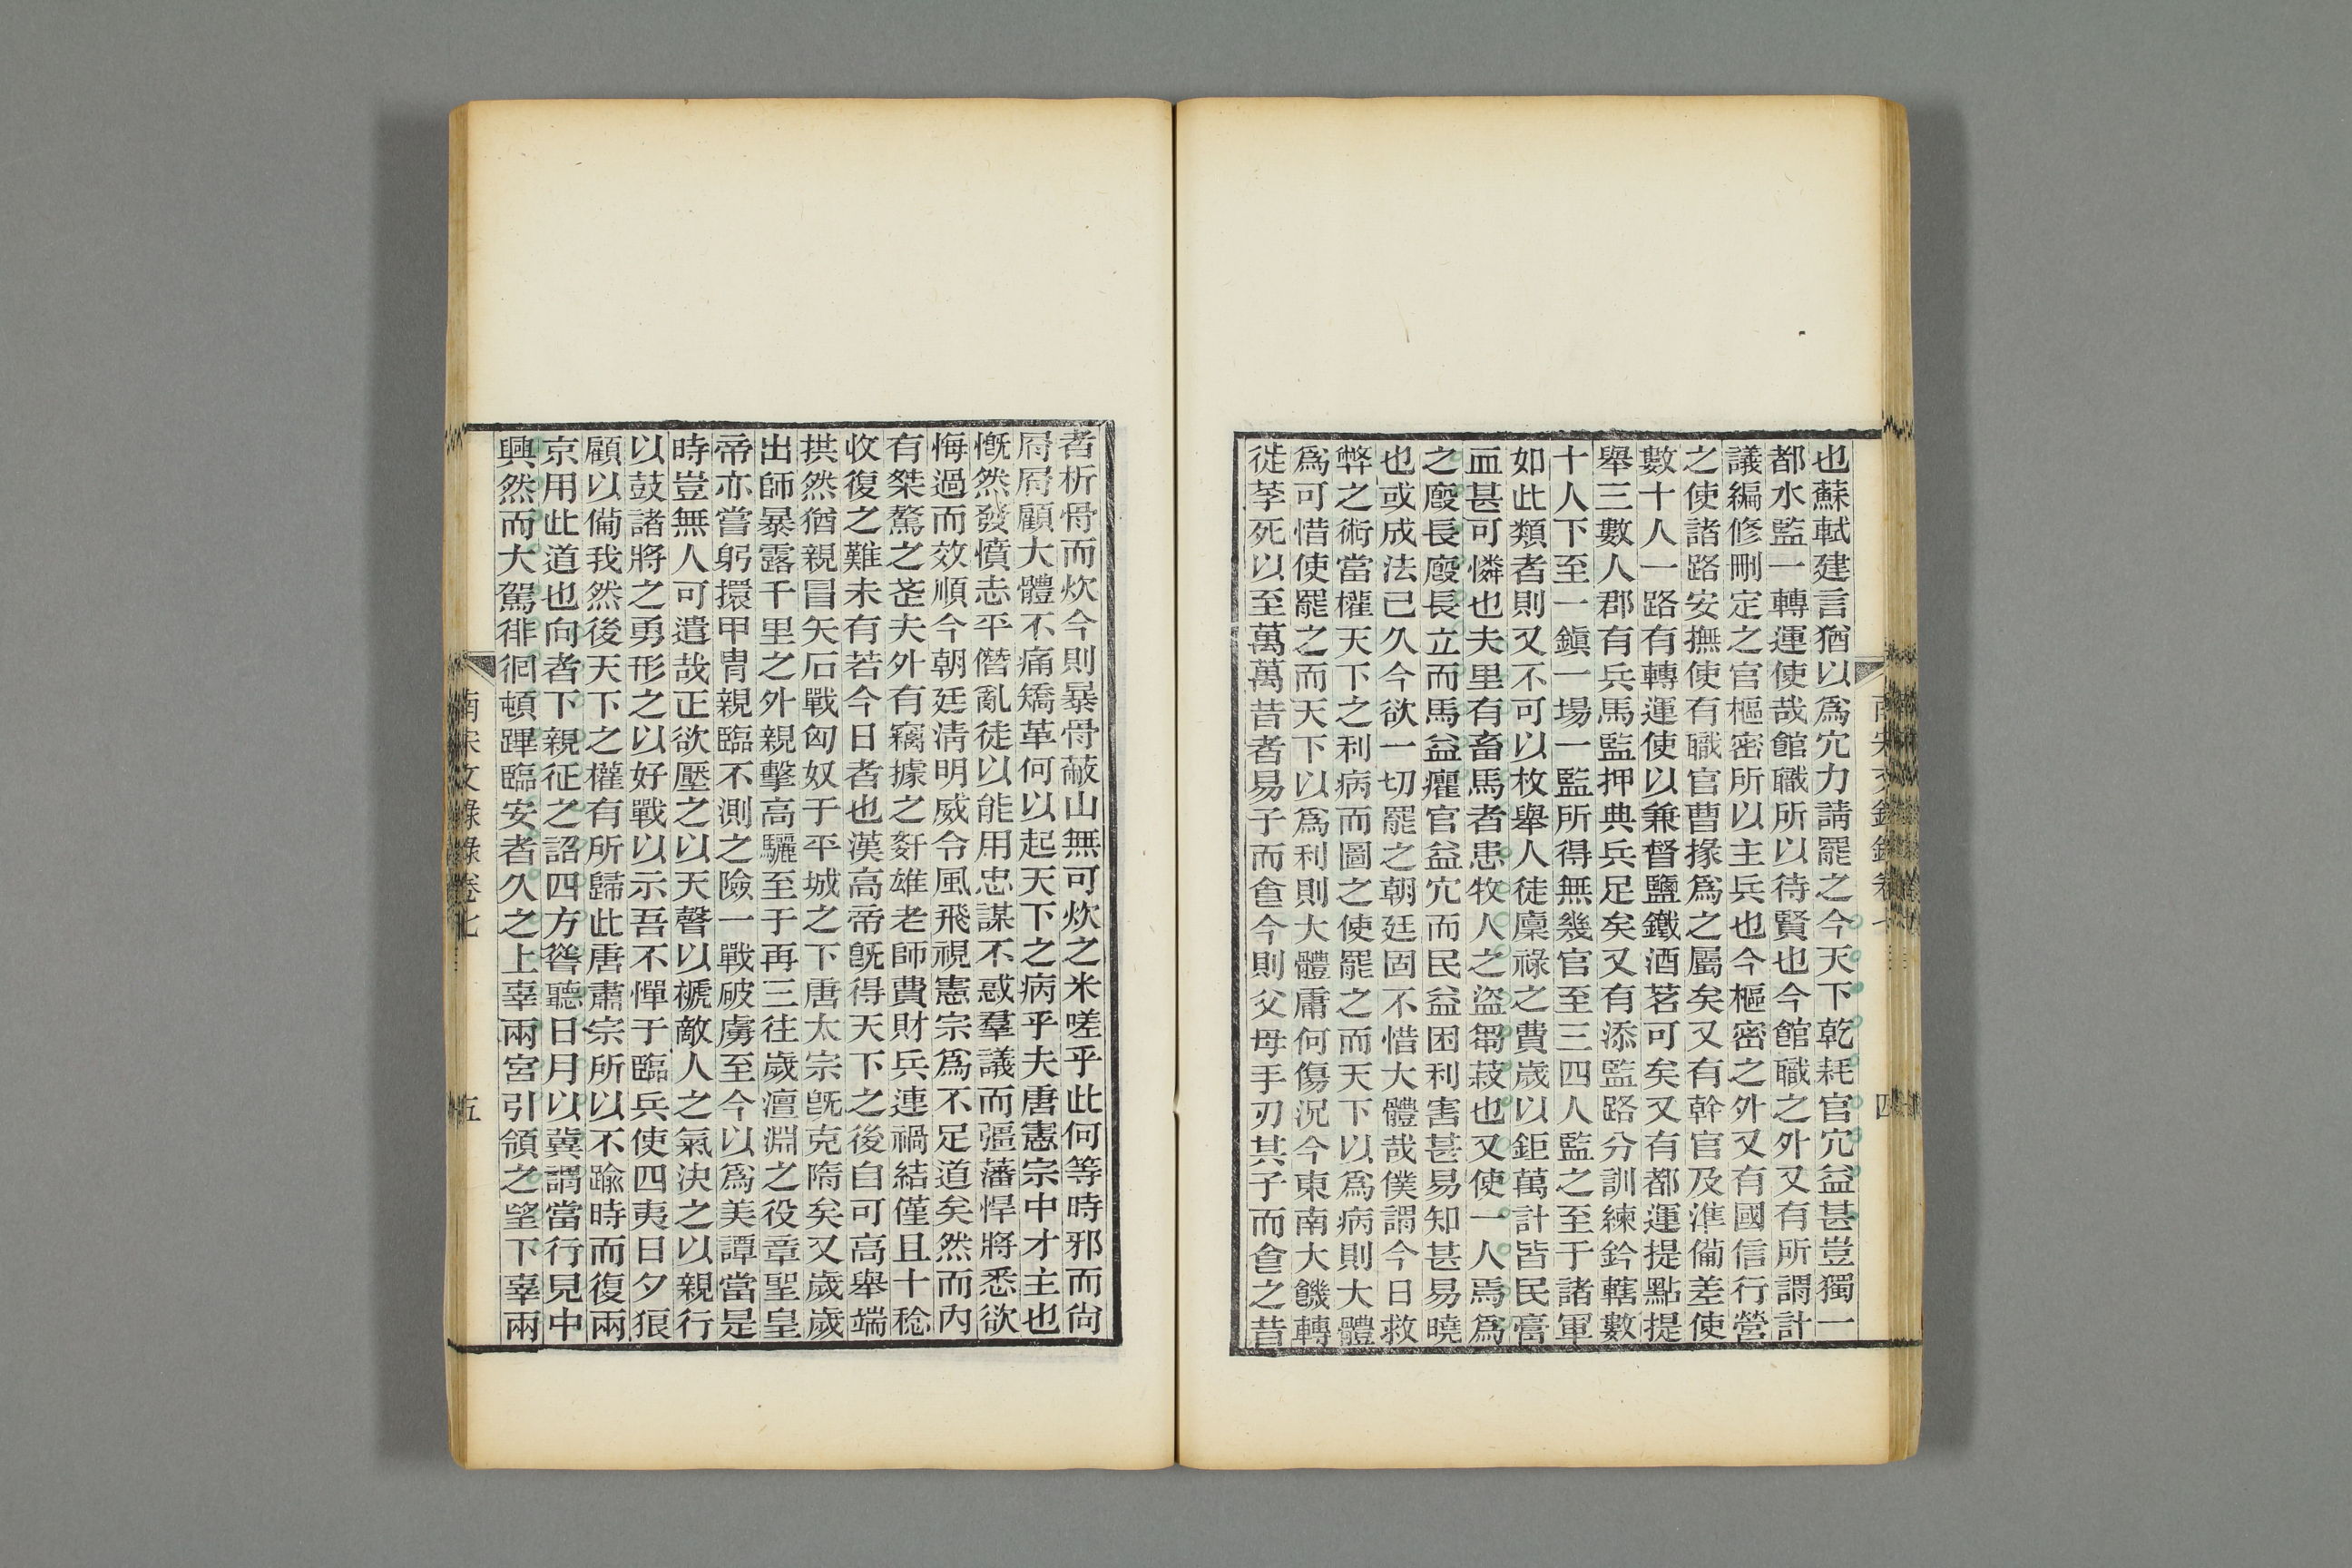 也蘇軾建言猶以爲宂力請罷之今天下乾耗官宂益甚豈獨一
都水監一轉運使哉館職所以待賢也今館職之外又有所謂計
議編修刪定之官樞密所以主兵也今樞密之外又有國信行營
之使諸路安撫使有職官曹掾爲之屬矣又有幹官及準備差使
數十人一路有轉運使以兼督鹽鐵酒茗可矣又有都運提點提
舉三數人郡有兵馬監押典兵足矣又有添監路分訓練鈐轄數
十人下至一鎭一場一監所得無幾官至三四人監之至于諸軍
如此類者則又不可以枚舉人徒廩祿之費歲以鉅萬計皆民膏
血甚可憐也夫里有畜馬者患牧人之盜芻茭也又使一人焉爲
之廄長廄長立而馬益癯官益宂而民益困利害甚易知甚易曉
也或成法已久今欲一切罷之朝廷固不惜大體哉僕謂今日救
弊之術當權天下之利病而圖之使罷之而天下以爲病則大體
爲可惜使罷之而天下以爲利則大體庸何傷況今東南大饑轉
徙莩死以至萬萬昔者易子而食今則父母手刃其子而食之昔
南宋文錄錄卷七
四
者析骨而炊今則暴骨蔽山無可炊之米嗟乎此何等時邪而尙
屑屑顧大體不痛矯革何以起天下之病乎夫唐憲宗中才主也
慨然發憤志平僭亂徒以能用忠謀不惑羣議而彊藩悍將悉欲
悔過而效順今朝廷淸明威令風飛視憲宗爲不足道矣然而內
有桀驁之萑夫外有竊據之姧雄老師費財兵連禍結僅且十稔
收復之難未有若今日者也漢高帝旣得天下之後自可高舉端
拱然猶親冒矢石戰匈奴于平城之下唐太宗旣克隋矣又歲歲
出師暴露千里之外親擊高驪至于再三往歲澶淵之役章聖皇
帝亦嘗躬擐甲冑親臨不測之險一戰破虜至今以爲美譚當是
時豈無人可遣哉正欲壓之以天聲以褫敵人之氣決之以親行
以鼓諸將之勇形之以好戰以示吾不憚于臨兵使四夷日夕狼
顧以備我然後天下之權有所歸此唐肅宗所以不踰時而復兩
京用此道也向者下親征之詔四方聳聽日月以冀謂當行見中
興然而大駕徘徊頓蹕臨安者久之上辜兩宮引領之望下辜兩
南宋文錄錄卷七
五